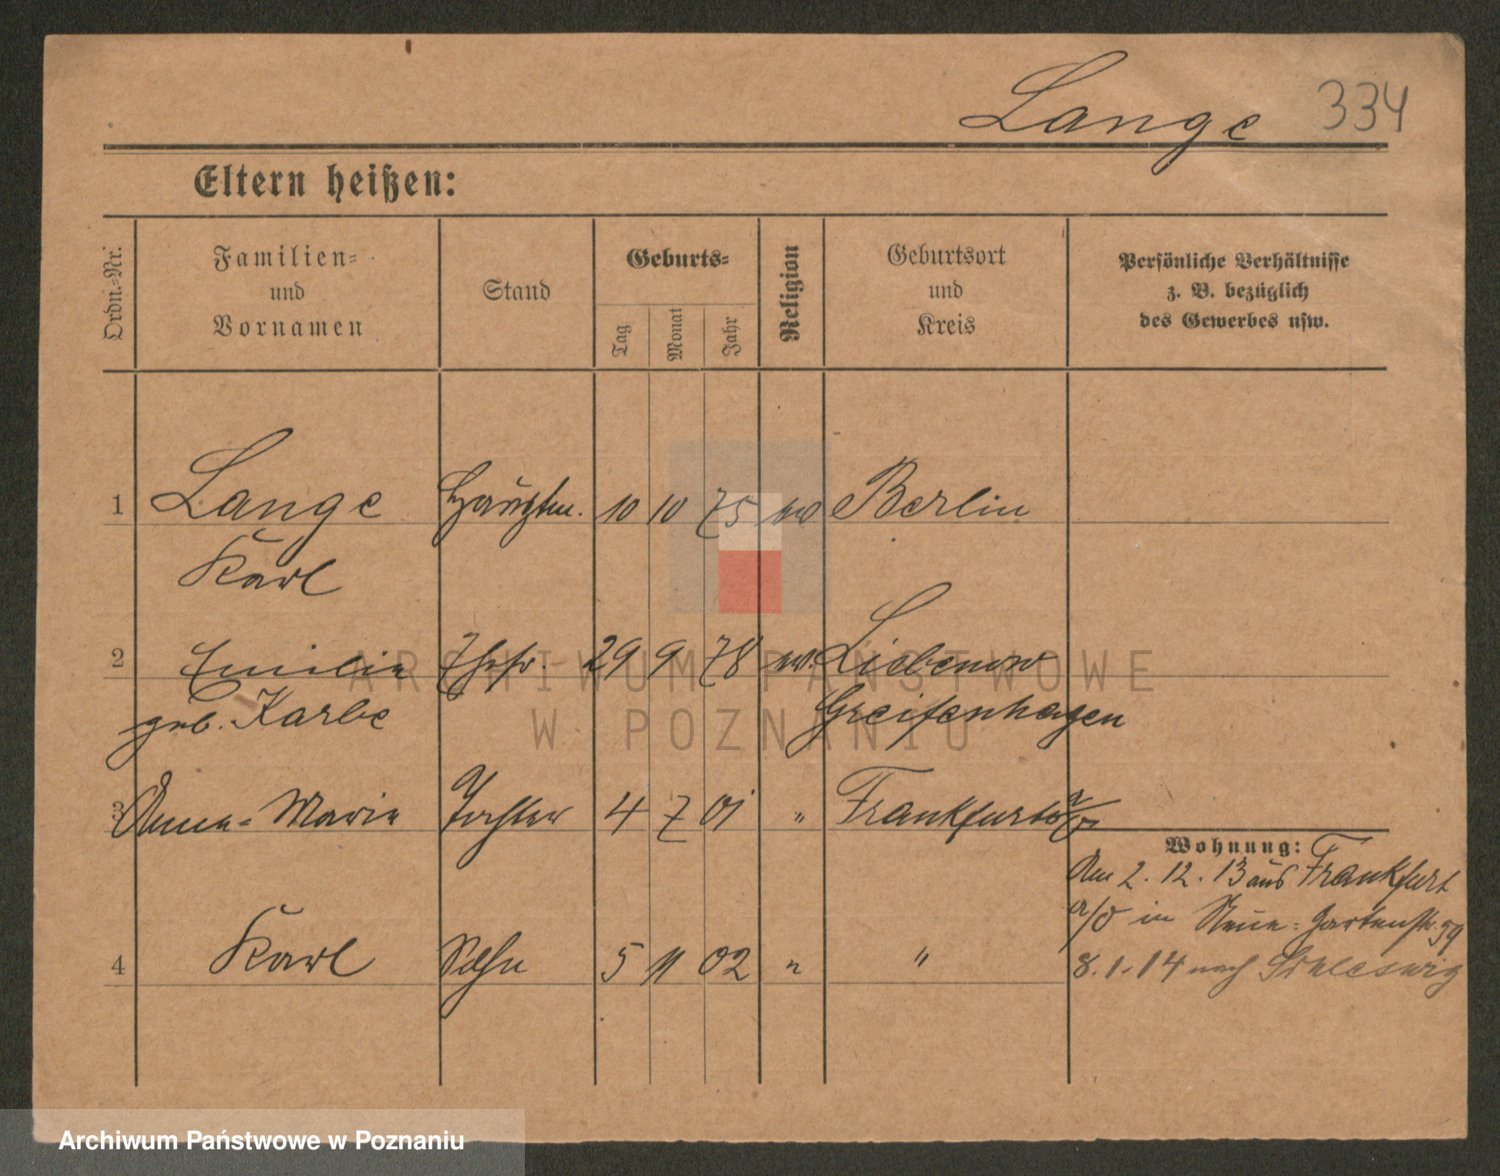 Lange 334
Eltern heißen:
Ordn.-Nr.
Familien-
und
Vornamen
Stand
Geburts-
Tag
Monat
Jahr
Religion
Geburtsort
und
Kreis
Persönliche Verhältnisse
z. B. bezüglich
des Gewerbes usw.
1 Lange Hauptm. 10 10 75 ev Berlin
Karl
2 Emilie Ehefr. 29 9 78 ev. Liebenow
geb. Karbe Greifenhagen
3 Anna-Marie Tochter 4 7 01 " Frankfurt a/O
Wohnung:
Am 2.12.13 aus Frankfurt
a/O in Neue-Gartenstr. 59
4 Karl Sohn 5 11 02 " "
8.1.14 nach Schleswig
ARCHIWUM PAŃSTWOWE
W POZNANIU
Archiwum Państwowe w Poznaniu